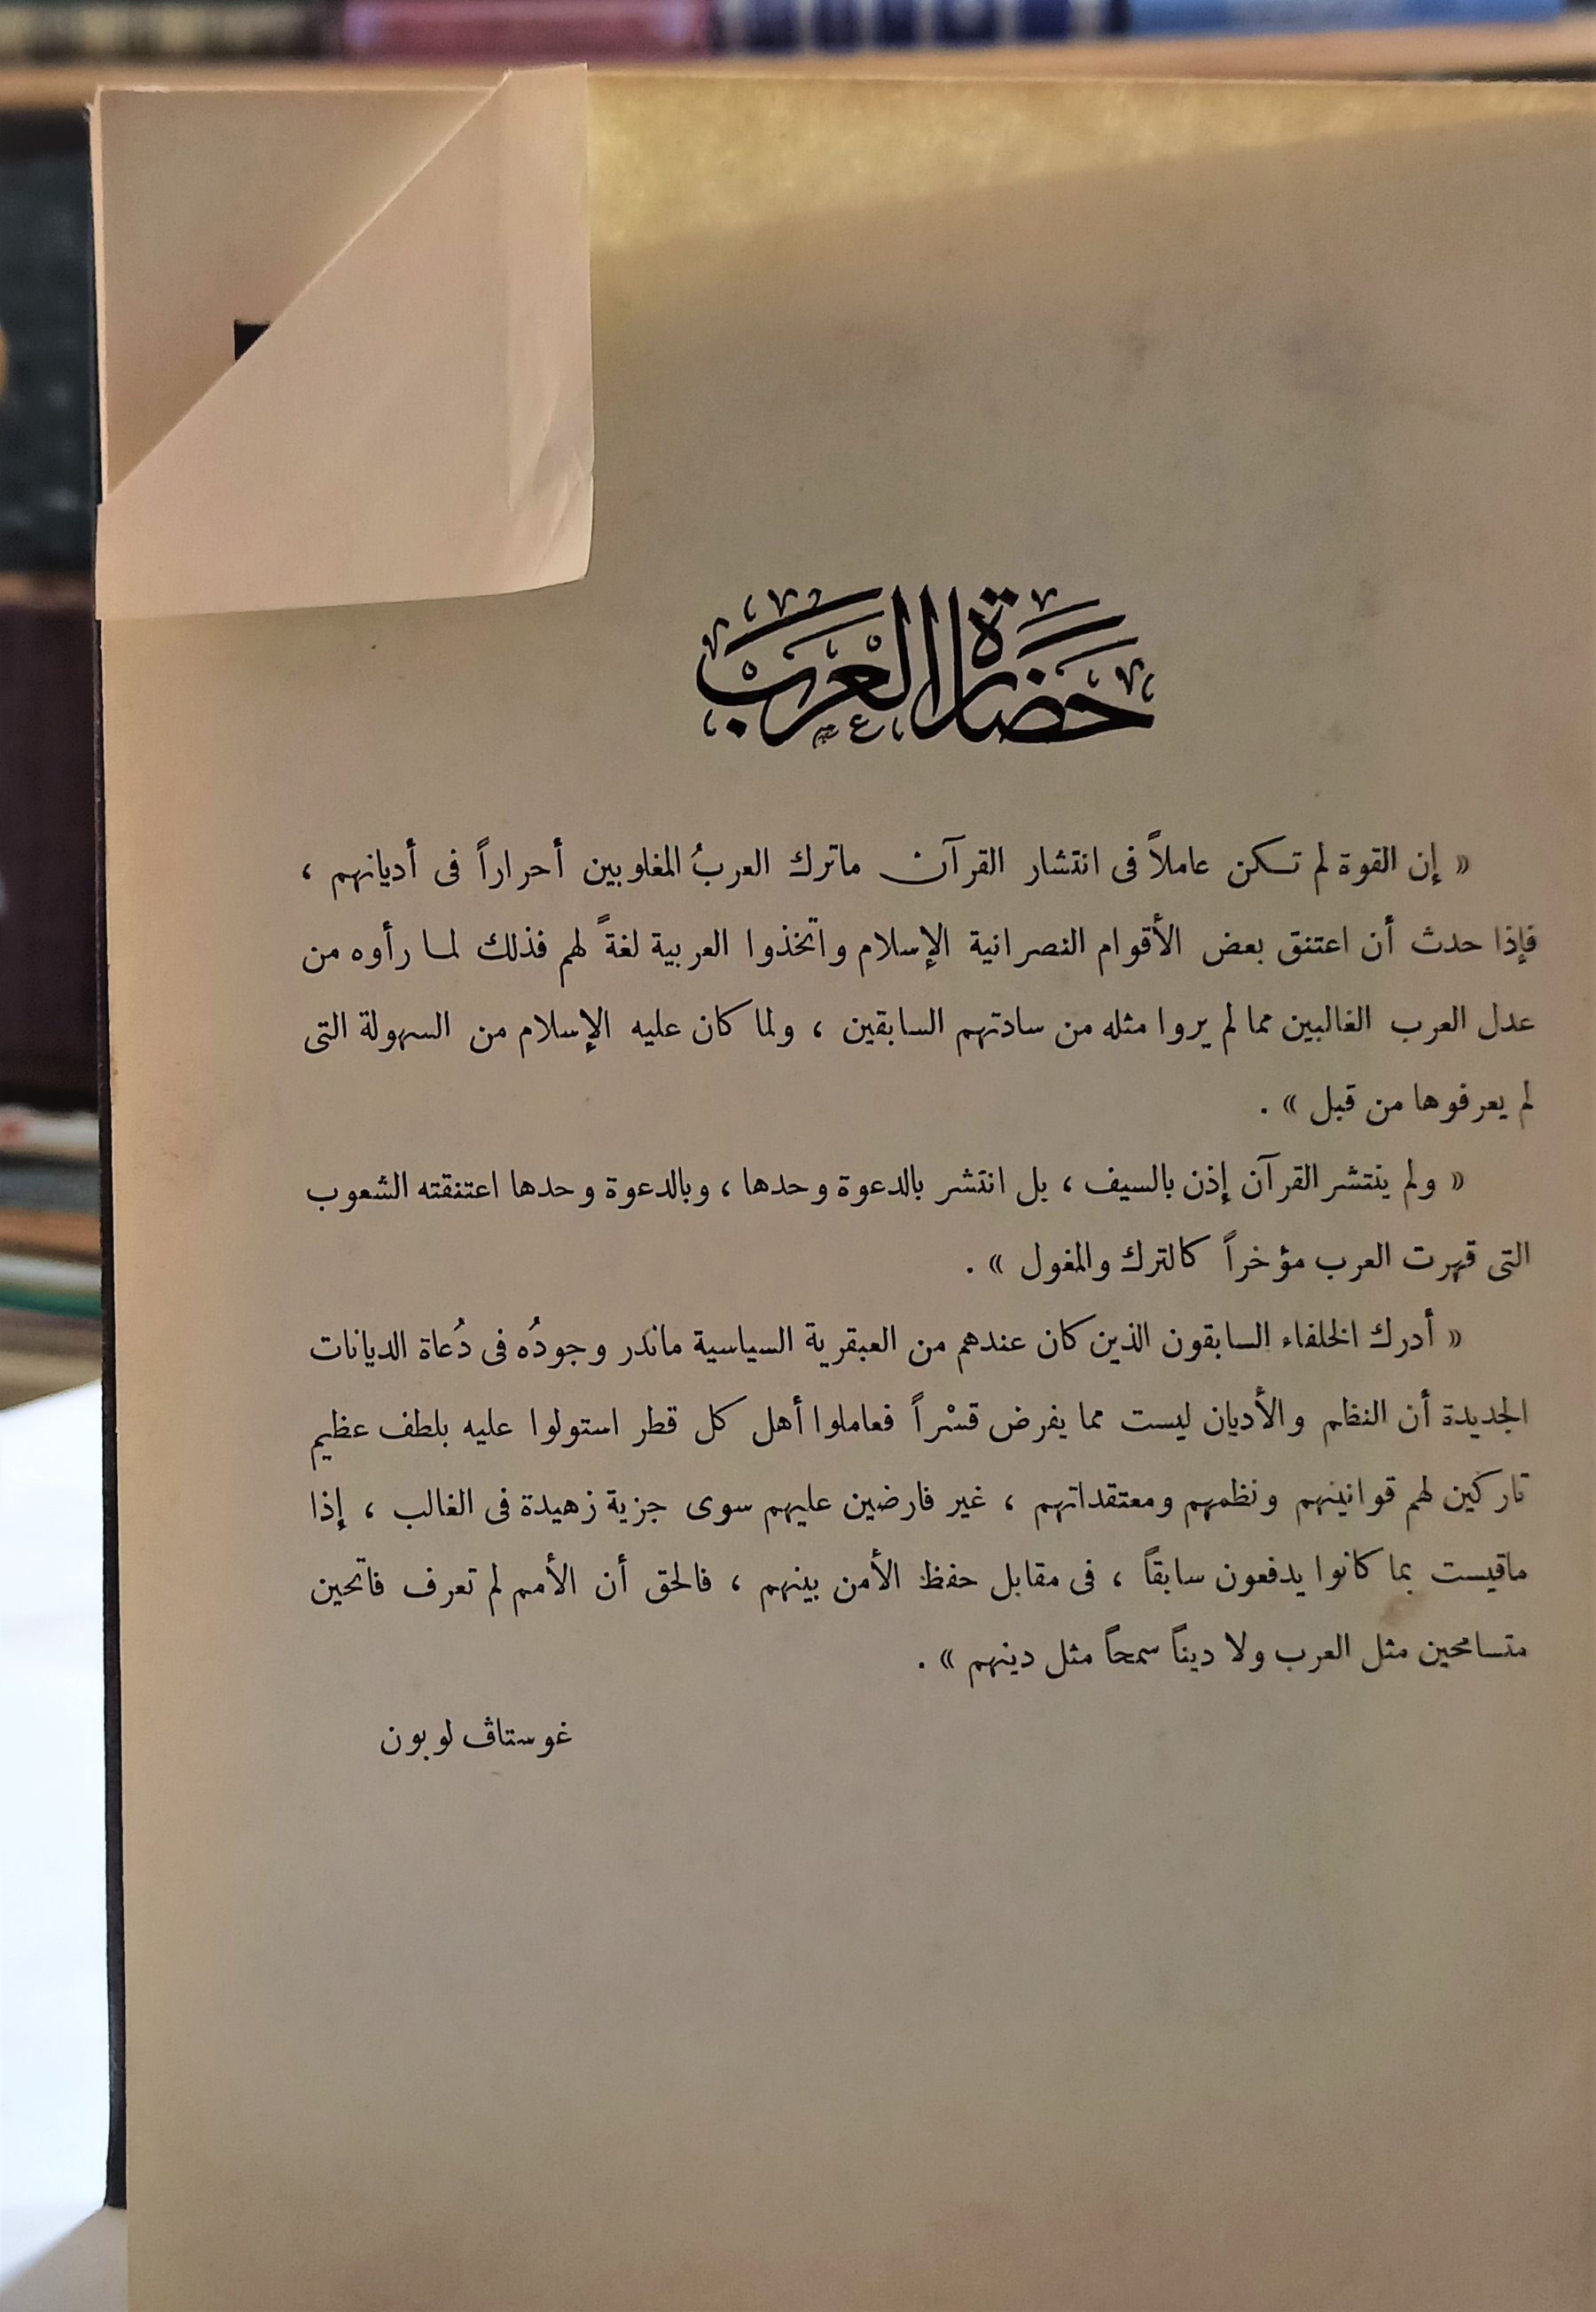 حضارة العرب
« إن القوة لم تكن عاملاً فى انتشار القرآن ماترك العربُ المغلوبين أحراراً فى أديانهم ،
فإذا حدث أن اعتنق بعض الأقوام النصرانية الإسلام واتخذوا العربية لغةً لهم فذلك لما رأوه من
عدل العرب الغالبين مما لم يروا مثله من سادتهم السابقين ، ولما كان عليه الإسلام من السهولة التى
لم يعرفوها من قبل » .
« ولم ينتشر القرآن إذن بالسيف ، بل انتشر بالدعوة وحدها ، وبالدعوة وحدها اعتنقته الشعوب
التى قهرت العرب مؤخراً كالترك والمغول » .
« أدرك الخلفاء السابقون الذين كان عندهم من العبقرية السياسية ماندر وجودُه فى دُعاة الديانات
الجديدة أن النظم والأديان ليست مما يفرض قسْراً فعاملوا أهل كل قطر استولوا عليه بلطف عظيم
تاركين لهم قوانينهم ونظمهم ومعتقداتهم ، غير فارضين عليهم سوى جزية زهيدة فى الغالب ، إذا
ماقيست بما كانوا يدفعون سابقاً ، فى مقابل حفظ الأمن بينهم ، فالحق أن الأمم لم تعرف فاتحين
متسامحين مثل العرب ولا ديناً سمحاً مثل دينهم » .
غوستاڤ لوبون